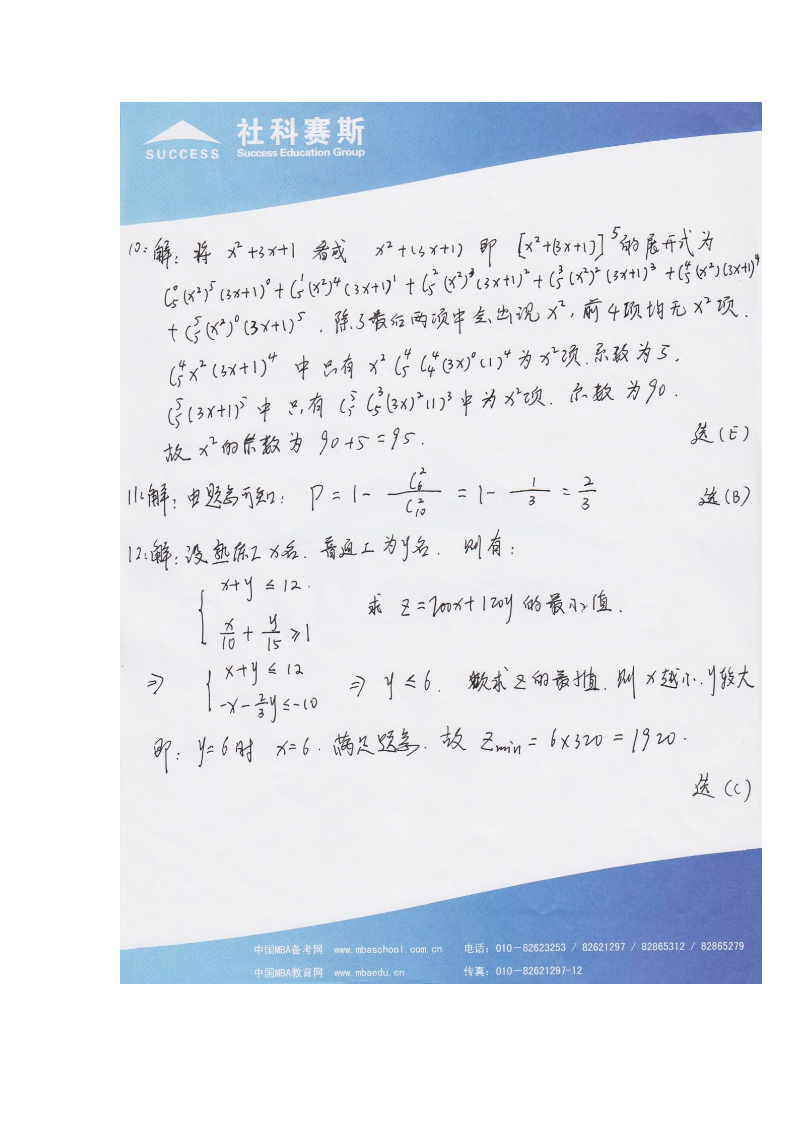 社科赛斯
SUCCESS Success Education Group
10:解:将 x²+3x+1 看成 x²+(3x+1) 即 [x²+(3x+1)]⁵的展开式为
C₅⁰(x²)⁵(3x+1)⁰+C₅¹(x²)⁴(3x+1)¹+C₅²(x²)³(3x+1)²+C₅³(x²)²(3x+1)³+C₅⁴(x²)(3x+1)⁴
+C₅⁵(x²)⁰(3x+1)⁵. 除了最后两项中会出现x²,前4项均无x²项.
C₅⁴x²(3x+1)⁴ 中只有 x²C₅⁴C₄⁴(3x)⁰(1)⁴为x²项.系数为5.
C₅⁵(3x+1)⁵中只有C₅⁵C₅³(3x)²(1)³中为x²项. 系数为90.
故x²的系数为 90+5=95. 选(E)
11:解:由题意可知: P=1-C₆²/C₁₀²=1-1/3=2/3 选(B)
12:解:设熟练工x名.普通工为y名. 则有:
x+y≤12.
x/10+y/15≥1 求 z=200x+120y的最小值.
⇒ x+y≤12
-x-2/3y≤-10 ⇒ y≤6. 欲求z的最小值.则x越小.y较大
即: y=6时 x=6.满足题意.故 Zmin=6×320=1920.
选(C)
中国MBA备考网 www.mbaschool.com.cn 电话:010-82623253 / 82621297 / 82865312 / 82865279
中国MBA教育网 www.mbaedu.cn 传真:010-82621297-12